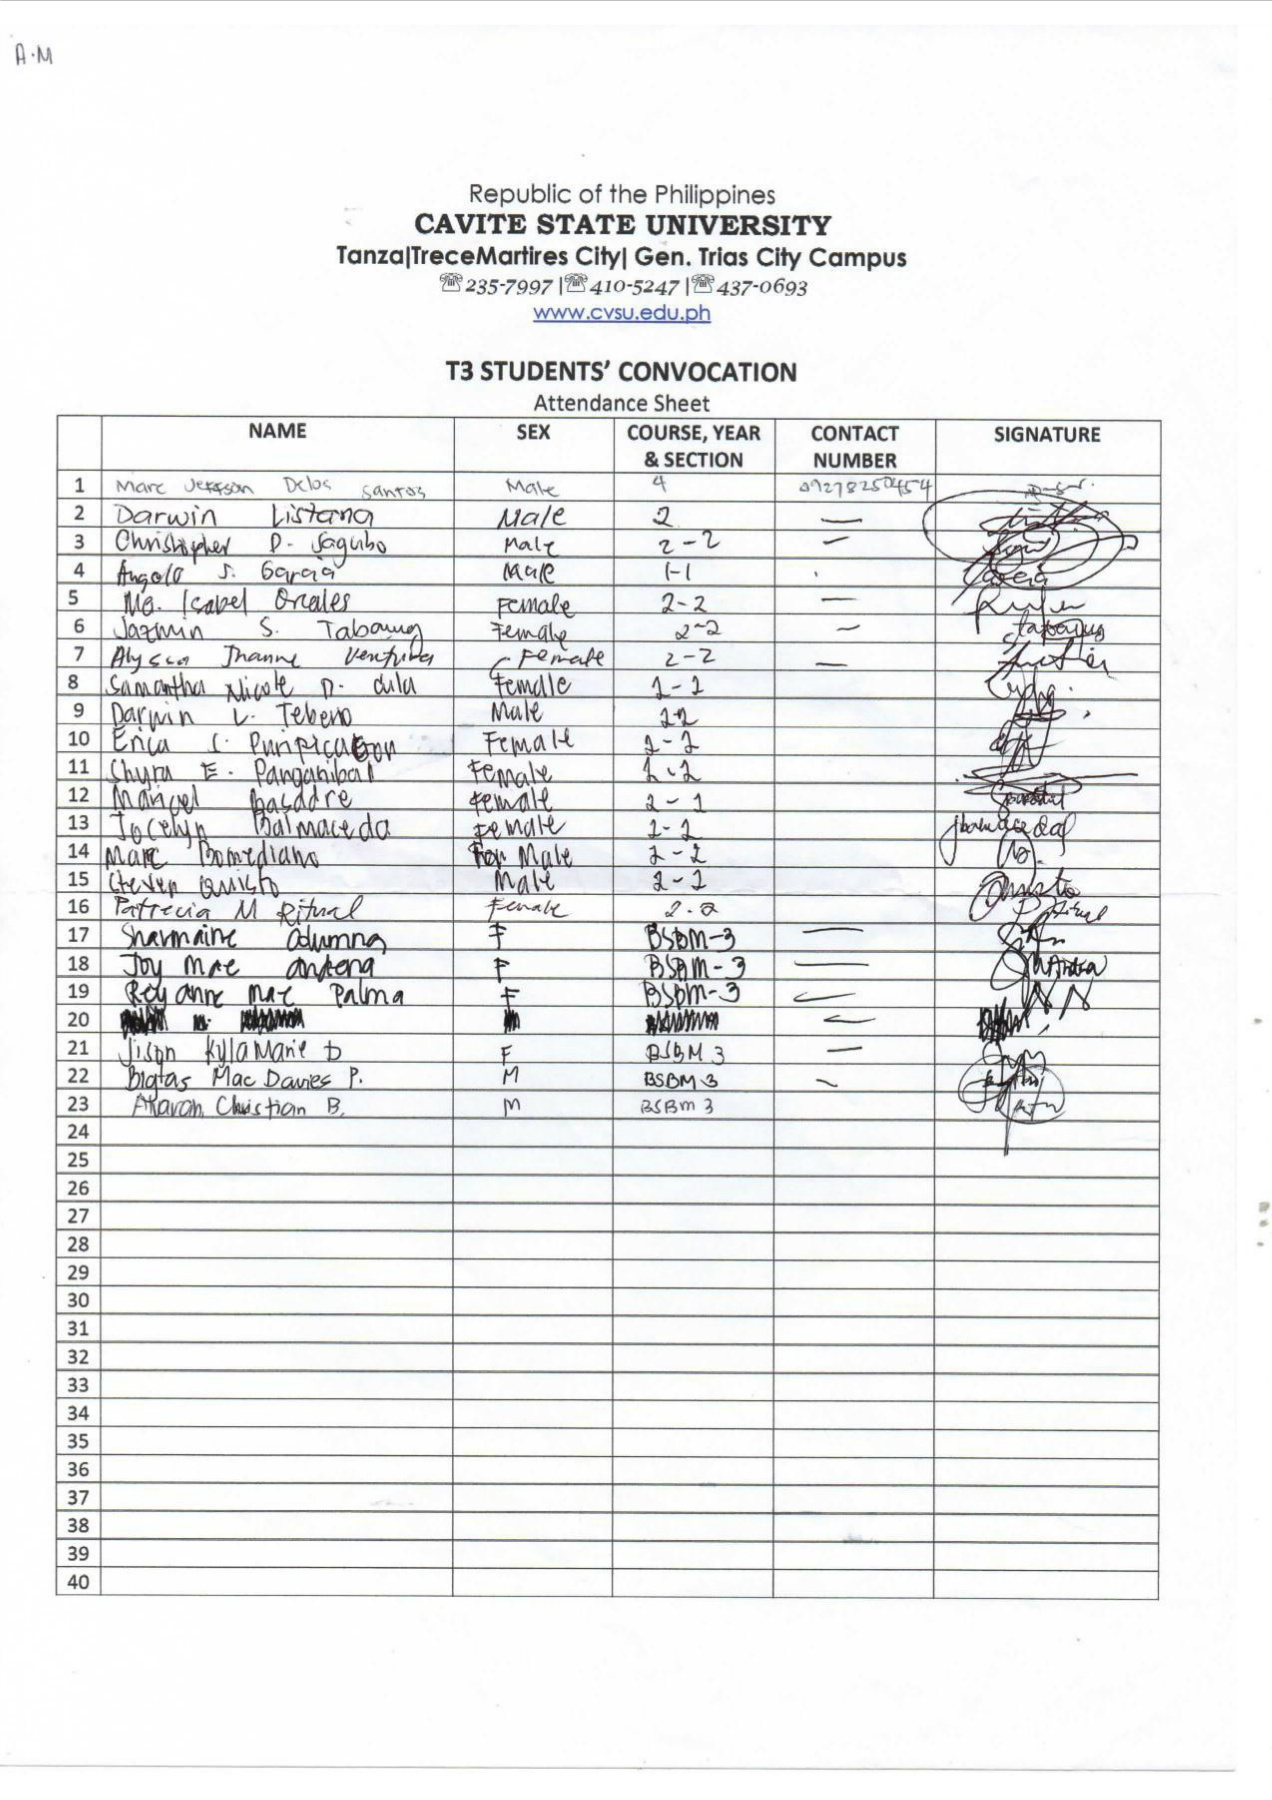 A.M
Republic of the Philippines
CAVITE STATE UNIVERSITY
Tanza|TreceMartires City| Gen. Trias City Campus
☏235-7997 |☏410-5247 |☏437-0693
www.cvsu.edu.ph
T3 STUDENTS' CONVOCATION
Attendance Sheet
NAME SEX COURSE, YEAR & SECTION CONTACT NUMBER SIGNATURE
1 Marc Jefferson Delos Santos Male 4 09278250454
2 Darwin Listana Male 2 —
3 Christopher D. Sagubo Male 2-2 —
4 Angelo S. Garcia Male 1-1 . Garcia
5 Ma. Isabel Orales Female 2-2 —
6 Jazmin S. Tabaung Female 2-2 — Tabaung
7 Alyssa Jhanne Ventura Female 2-2 —
8 Samantha Nicole D. dula Female 2-2
9 Darwin L. Tebeno Male 2-2
10 Erica C. Purificacion Female 2-2
11 Shyra E. Panganiban Female 2-2
12 Maricel Basadre Female 2-2
13 Jocelyn Balmaceda Female 2-2 jbalmaceda
14 Marc Bomediano Male 2-2
15 Steven Quisto Male 2-2 Quisto
16 Patrecia M Ritual Female 2-2 Ritual
17 Sharmaine Columna F BSBM-3 —
18 Joy Mae Antena F BSBM-3 —
19 Rey anne mae Palma F BSBM-3 —
20 —
21 Jison Kyla Marie D F BSBM 3 —
22 Bigtas Mac Davies P. M BSBM 3 ~
23 Christian B. M BSBM 3
24
25
26
27
28
29
30
31
32
33
34
35
36
37
38
39
40